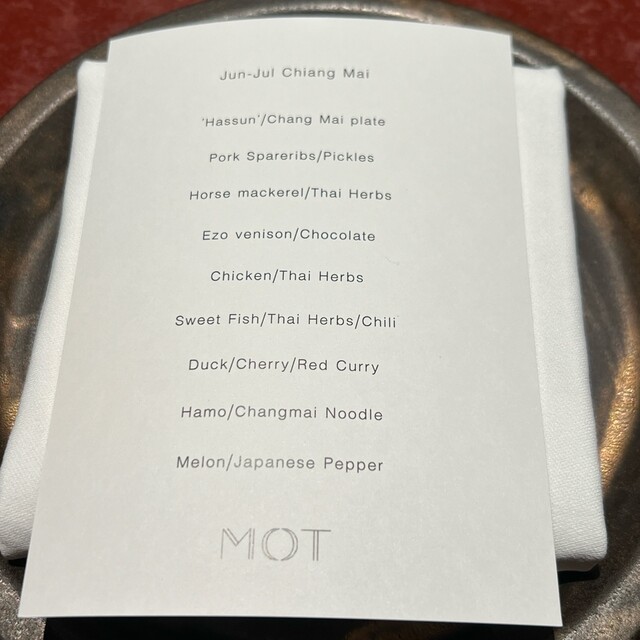 Jun-Jul Chiang Mai
'Hassun'/Chang Mai plate
Pork Spareribs/Pickles
Horse mackerel/Thai Herbs
Ezo venison/Chocolate
Chicken/Thai Herbs
Sweet Fish/Thai Herbs/Chili
Duck/Cherry/Red Curry
Hamo/Changmai Noodle
Melon/Japanese Pepper
MOT